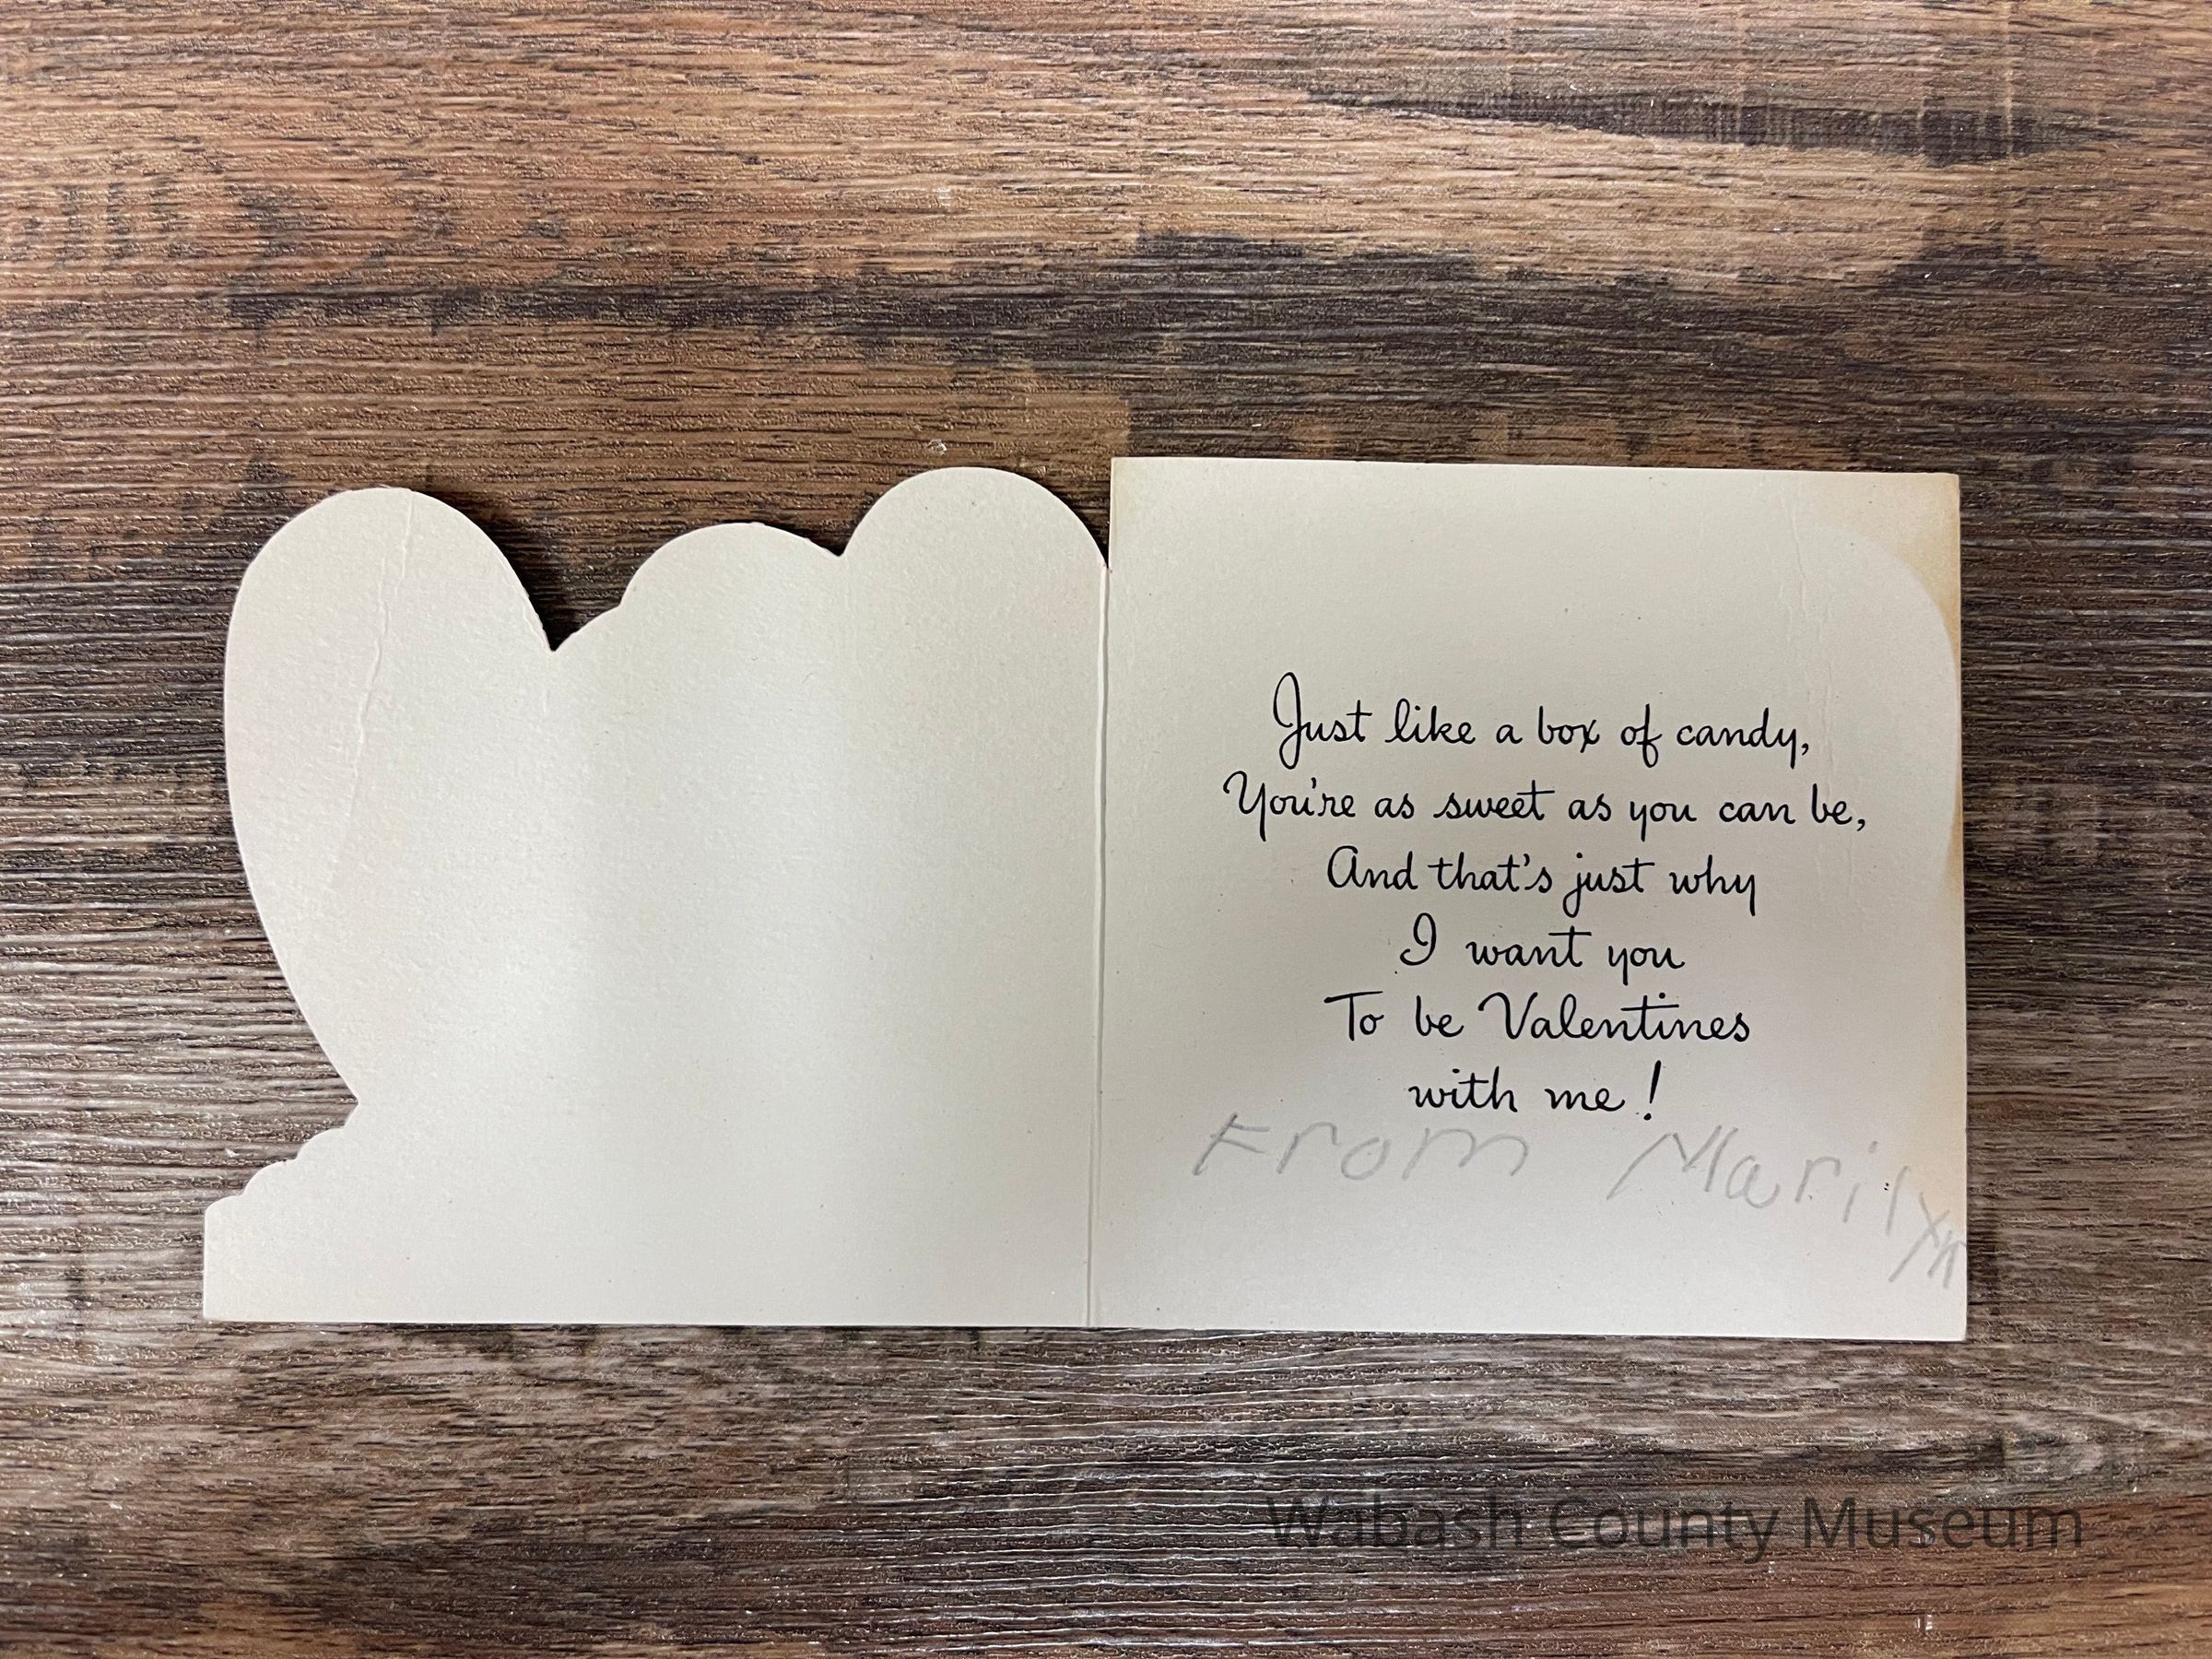 Just like a box of candy,
You're as sweet as you can be,
And that's just why
I want you
To be Valentines
with me!
From Marilyn
Wabash County Museum